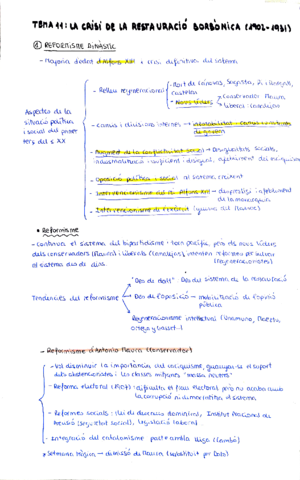 TEMA 11: LA CRISI DE LA RESTAURACIÓ BORBÒNICA (1902-1931)
① REFORMISME DINÀSTIC
- Majoria d'edat d'Alfons XIII → crisi definitiva del sistema
Aspectes de la situació política i social del primer terç del s XX
- Relleu regeneracionista
- Mort de Cánovas, Sagasta,
- Nous líders
Conservador: Maura
Liberal: Canalejas
- Canvis i divisions internes → inestabilitat = canvis constants de govern
- Augment de la conflictivitat social = Desigualtats socials,
- Oposició política i social al sistema creixent
- Intervencionisme del rei Alfons XIII →
- Intervencionisme de l'exèrcit (guerra del Marroc)
• Reformisme
- Continua el sistema del bipartidisme i torn pacífic, però els nous líders
dels conservadors (Maura) i liberals (Canalejas), intenten reformes per salvar
el sistema des de dins. (regeneracionistes)
Tendències del reformisme
"Des de dalt" Des del sistema de la restauració
Des de l'oposició → mobilització de l'opinió pública
Regeneracionisme intel·lectual (Unamuno, Maeztu, Ortega y Gasset...)
- Reformisme d'Antonio Maura (conservador)
- Vol disminuir la importància del caciquisme, guanyar-se el suport
dels abstencionistes i les classes mitjanes "massa neutra"
- Reforma electoral (1907): dificulta el frau electoral però no acaba amb
la corrupció ni democratitza el sistema
- Reformes socials: llei de descans dominical, Institut Nacional de
Previsió (seguretat social), legislació laboral
- Integració del catalanisme: pacte amb la lliga (Cambó)
* Setmana tràgica → dimissió de Maura (substituït per